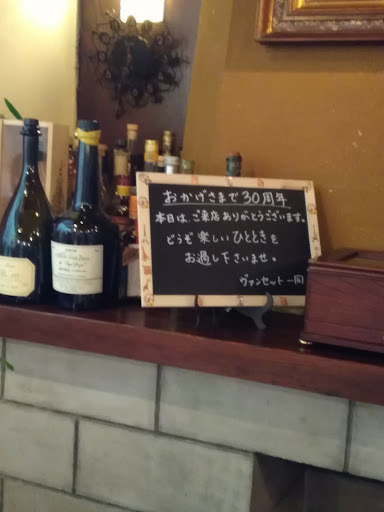 おかげさまで30周年
本日は、ご来店ありがとうございます。
どうぞ楽しいひとときを
お過し下さいませ。
ヴァンセット一同